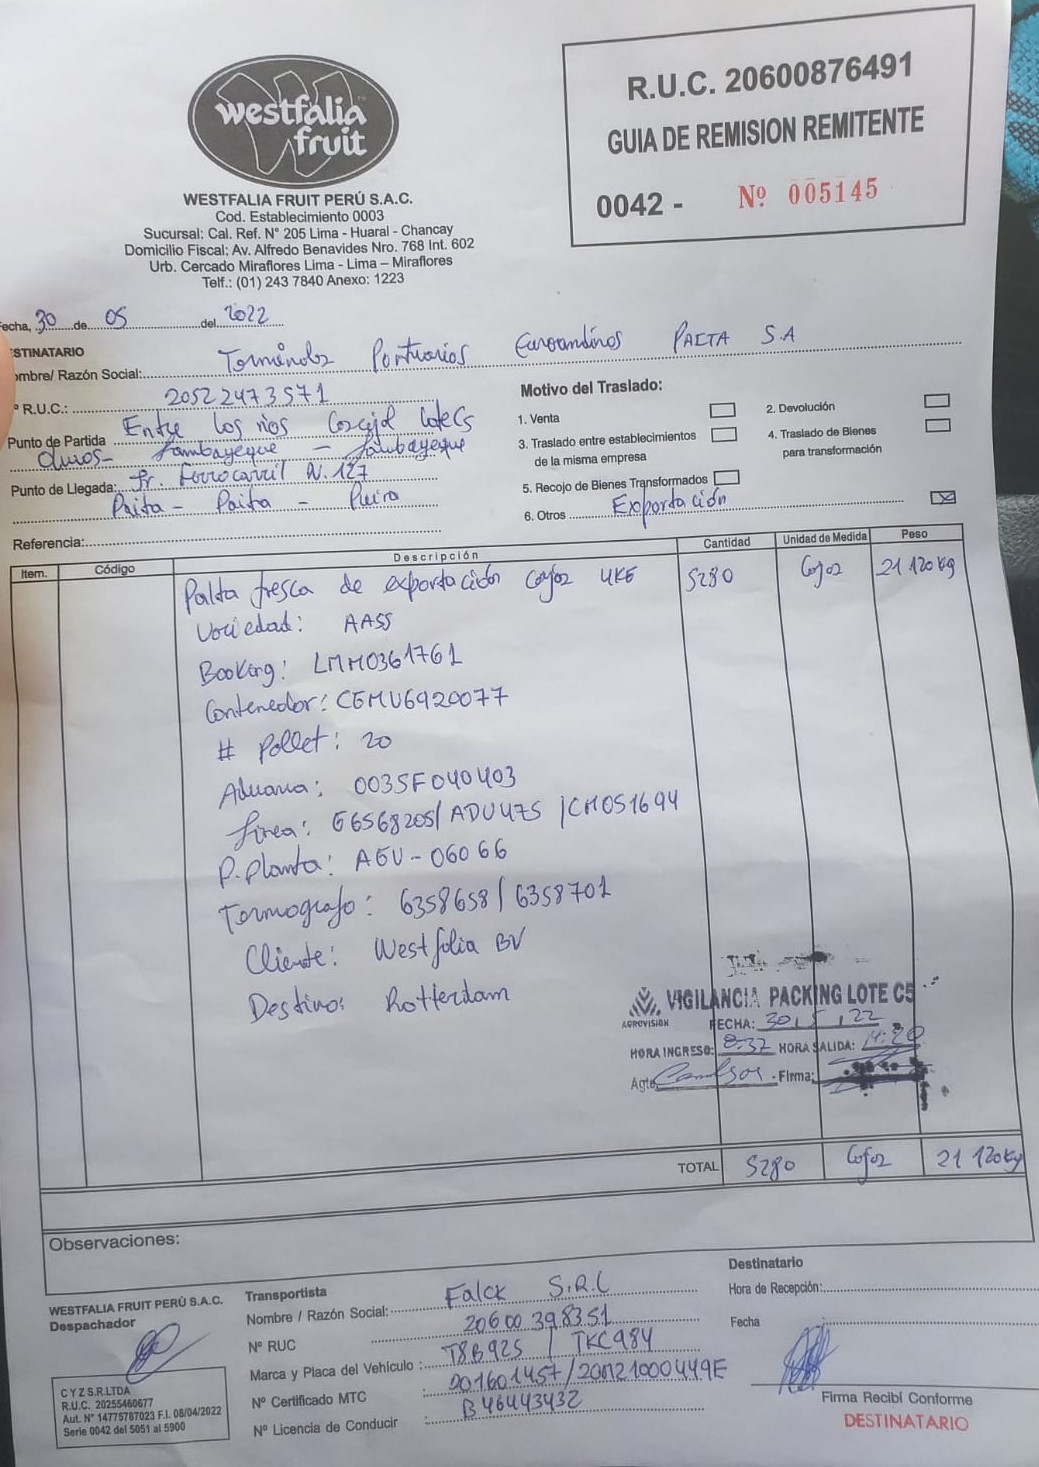 westfalia
fruit
R.U.C. 20600876491
GUIA DE REMISION REMITENTE
0042 - Nº 005145
WESTFALIA FRUIT PERÚ S.A.C.
Cod. Establecimiento 0003
Sucursal: Cal. Ref. N° 205 Lima - Huaral - Chancay
Domicilio Fiscal: Av. Alfredo Benavides Nro. 768 Int. 602
Urb. Cercado Miraflores Lima - Lima – Miraflores
Telf.: (01) 243 7840 Anexo: 1223
echa, 30 de 05 del 2022
STINATARIO
ombre/ Razón Social: Terminales Portuarios Euroandinos PAITA S.A
° R.U.C.: 20522473571
Punto de Partida Entre los rios
Olmos - Lambayeque - Lambayeque
Punto de Llegada: Jr. Ferrocarril N. 127
Paita - Paita - Piura
Referencia:
Motivo del Traslado:
1. Venta
2. Devolución
3. Traslado entre establecimientos
de la misma empresa
4. Traslado de Bienes
para transformación
5. Recojo de Bienes Transformados
6. Otros Exportación
Item. Código Descripción Cantidad Unidad de Medida Peso
Palta fresca de exportación Cajas 4KG 5280 Cajas 21 120 kg
Variedad: AASS
Booking: LMM0361761
Contenedor: CEMU6920077
# Pallet: 20
Aduana: 0035F040403
Linea: G6568205/ ADU475 /CM051694
P. Planta: AGV-06066
Termografo: 6358658 / 6358701
Cliente: Westfalia BV
Destino: Rotterdam
VIGILANCIA PACKING LOTE C5
AGROVISION
FECHA: 30, 5, 22
HORA INGRESO: 8:37 HORA SALIDA:
Agte Firma:
TOTAL 5280 Cajas 21 120kg
Observaciones:
WESTFALIA FRUIT PERÚ S.A.C.
Despachador
C Y Z S.R.LTDA
R.U.C. 20255460677
Aut. N° 14775787023 F.I. 08/04/2022
Serie 0042 del 5051 al 5900
Transportista
Nombre / Razón Social: Falck S.R.L
Nº RUC 20600398351
Marca y Placa del Vehículo: T8B925 / TKC984
Nº Certificado MTC 201601457/20M21000449E
Nº Licencia de Conducir B46443432
Destinatario
Hora de Recepción:
Fecha
Firma Recibí Conforme
DESTINATARIO